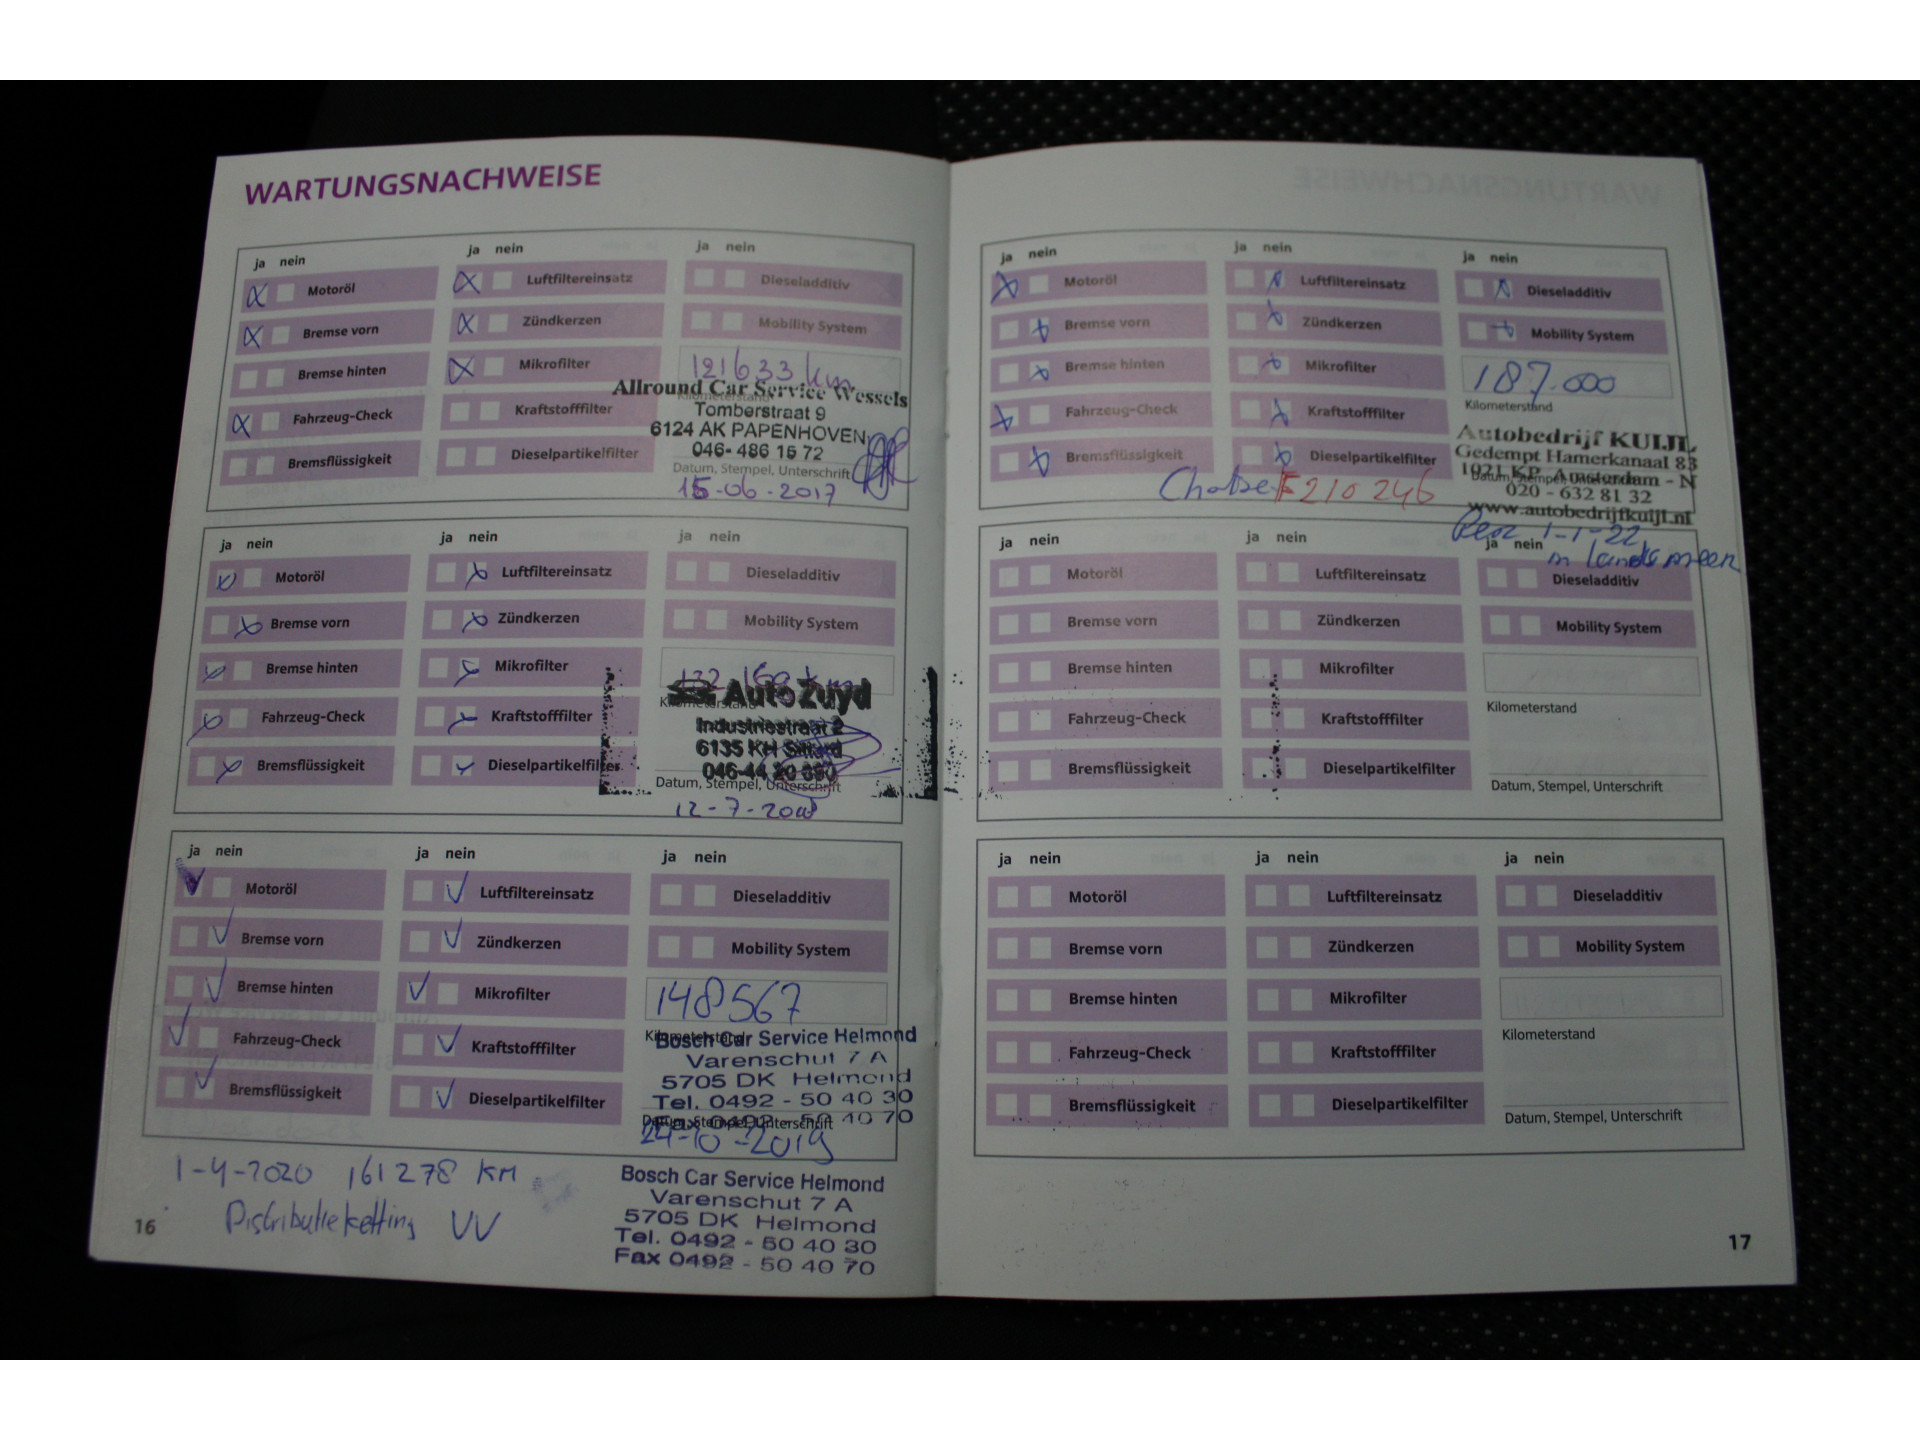 WARTUNGSNACHWEISE
ja nein
Motoröl
Bremse vorn
Bremse hinten
Fahrzeug-Check
Bremsflüssigkeit
ja nein
Luftfiltereinsatz
Zündkerzen
Mikrofilter
Kraftstofffilter
Dieselpartikelfilter
ja nein
Dieseladditiv
Mobility System
121633 km
Kilometerstand
Allround Car Service Wessels
Tomberstraat 9
6124 AK PAPENHOVEN
046-486 16 72
Datum, Stempel, Unterschrift
15-06-2017
ja nein
Motoröl
Bremse vorn
Bremse hinten
Fahrzeug-Check
Bremsflüssigkeit
ja nein
Luftfiltereinsatz
Zündkerzen
Mikrofilter
Kraftstofffilter
Dieselpartikelfilter
ja nein
Dieseladditiv
Mobility System
Kilometerstand
Auto Zuyd
Industriestraat 2
6135 KH Sittard
046-44 20 690
Datum, Stempel, Unterschrift
12-7-2018
ja nein
Motoröl
Bremse vorn
Bremse hinten
Fahrzeug-Check
Bremsflüssigkeit
ja nein
Luftfiltereinsatz
Zündkerzen
Mikrofilter
Kraftstofffilter
Dieselpartikelfilter
ja nein
Dieseladditiv
Mobility System
148567
Kilometerstand
Bosch Car Service Helmond
Varenschut 7 A
5705 DK Helmond
Tel. 0492 - 50 40 30
Fax 0492 - 50 40 70
Datum, Stempel, Unterschrift
24-10-2019
1-4-2020 161278 KM
Distributieketting VV
Bosch Car Service Helmond
Varenschut 7 A
5705 DK Helmond
Tel. 0492 - 50 40 30
Fax 0492 - 50 40 70
16
ja nein
Motoröl
Bremse vorn
Bremse hinten
Fahrzeug-Check
Bremsflüssigkeit
ja nein
Luftfiltereinsatz
Zündkerzen
Mikrofilter
Kraftstofffilter
Dieselpartikelfilter
ja nein
Dieseladditiv
Mobility System
187.000
Kilometerstand
Autobedrijf KUIJL
Gedempt Hamerkanaal 83
1021 KP Amsterdam - N
Datum, Stempel, Unterschrift
020 - 632 81 32
www.autobedrijfkuijl.nl
F210246
1-1-22
ja nein
Motoröl
Bremse vorn
Bremse hinten
Fahrzeug-Check
Bremsflüssigkeit
ja nein
Luftfiltereinsatz
Zündkerzen
Mikrofilter
Kraftstofffilter
Dieselpartikelfilter
ja nein
in Landsmeer
Dieseladditiv
Mobility System
Kilometerstand
Datum, Stempel, Unterschrift
ja nein
Motoröl
Bremse vorn
Bremse hinten
Fahrzeug-Check
Bremsflüssigkeit
ja nein
Luftfiltereinsatz
Zündkerzen
Mikrofilter
Kraftstofffilter
Dieselpartikelfilter
ja nein
Dieseladditiv
Mobility System
Kilometerstand
Datum, Stempel, Unterschrift
17